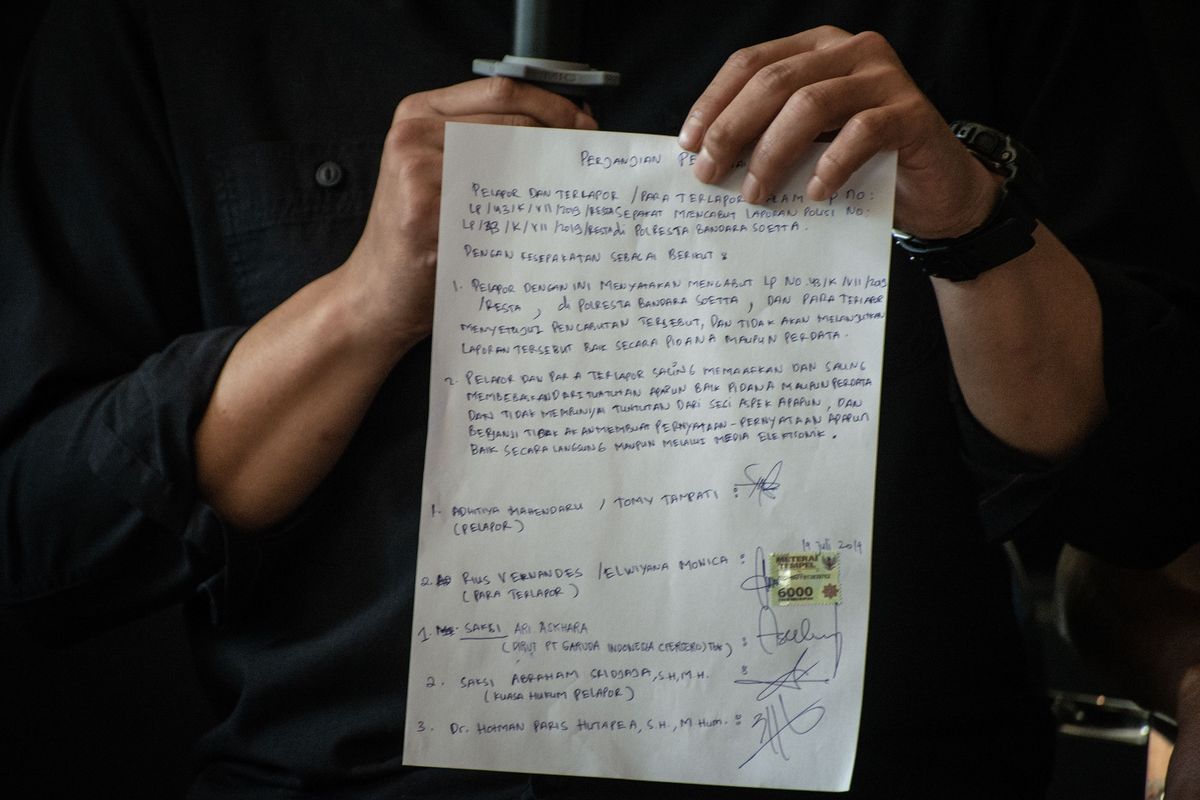 PERJANJIAN PE
PELAPOR DAN TERLAPOR / PARA TERLAPOR NO:
LP/43/K/VII/2019/RESTA SEPAKAT MENCABUT LAPORAN POLISI NO:
LP/43/K/VII/2019/RESTA di POLRESTA BANDARA SOETTA.
DENGAN KESEPAKATAN SEBAGAI BERIKUT :
1. PELAPOR DENGAN INI MENYATAKAN MENCABUT LP NO.43/K/VII/2019
/RESTA, di POLRESTA BANDARA SOETTA, DAN PARA TERLAPOR
MENYETUJUI PENCABUTAN TERSEBUT, DAN TIDAK AKAN MELANJUTKAN
LAPORAN TERSEBUT BAIK SECARA PIDANA MAUPUN PERDATA.
2. PELAPOR DAN PARA TERLAPOR SALING MEMAAFKAN DAN SALING
MEMBEBASKAN DARI TUNTUTAN APAPUN BAIK PIDANA MAUPUN PERDATA
DAN TIDAK MEMPUNYAI TUNTUTAN DARI SEGI ASPEK APAPUN, DAN
BERJANJI TIDAK AKAN MEMBUAT PERNYATAAN-PERNYATAAN APAPUN
BAIK SECARA LANGSUNG MAUPUN MELALUI MEDIA ELEKTRONIK.
1. ADHITIYA MAHENDARU / TOMY TAMPATI :
(PELAPOR)
19 Juli 2019
2. RIUS VERNANDES / ELWIYANA MONICA :
(PARA TERLAPOR)
METERAI
TEMPEL
6000
1. SAKSI ARI ASKHARA
(DIRUT PT GARUDA INDONESIA (PERSERO) Tbk) :
2. SAKSI ABRAHAM SRIDJAJA, S.H, M.H. :
(KUASA HUKUM PELAPOR)
3. Dr. HOTMAN PARIS HUTAPEA, S.H., M.Hum. :